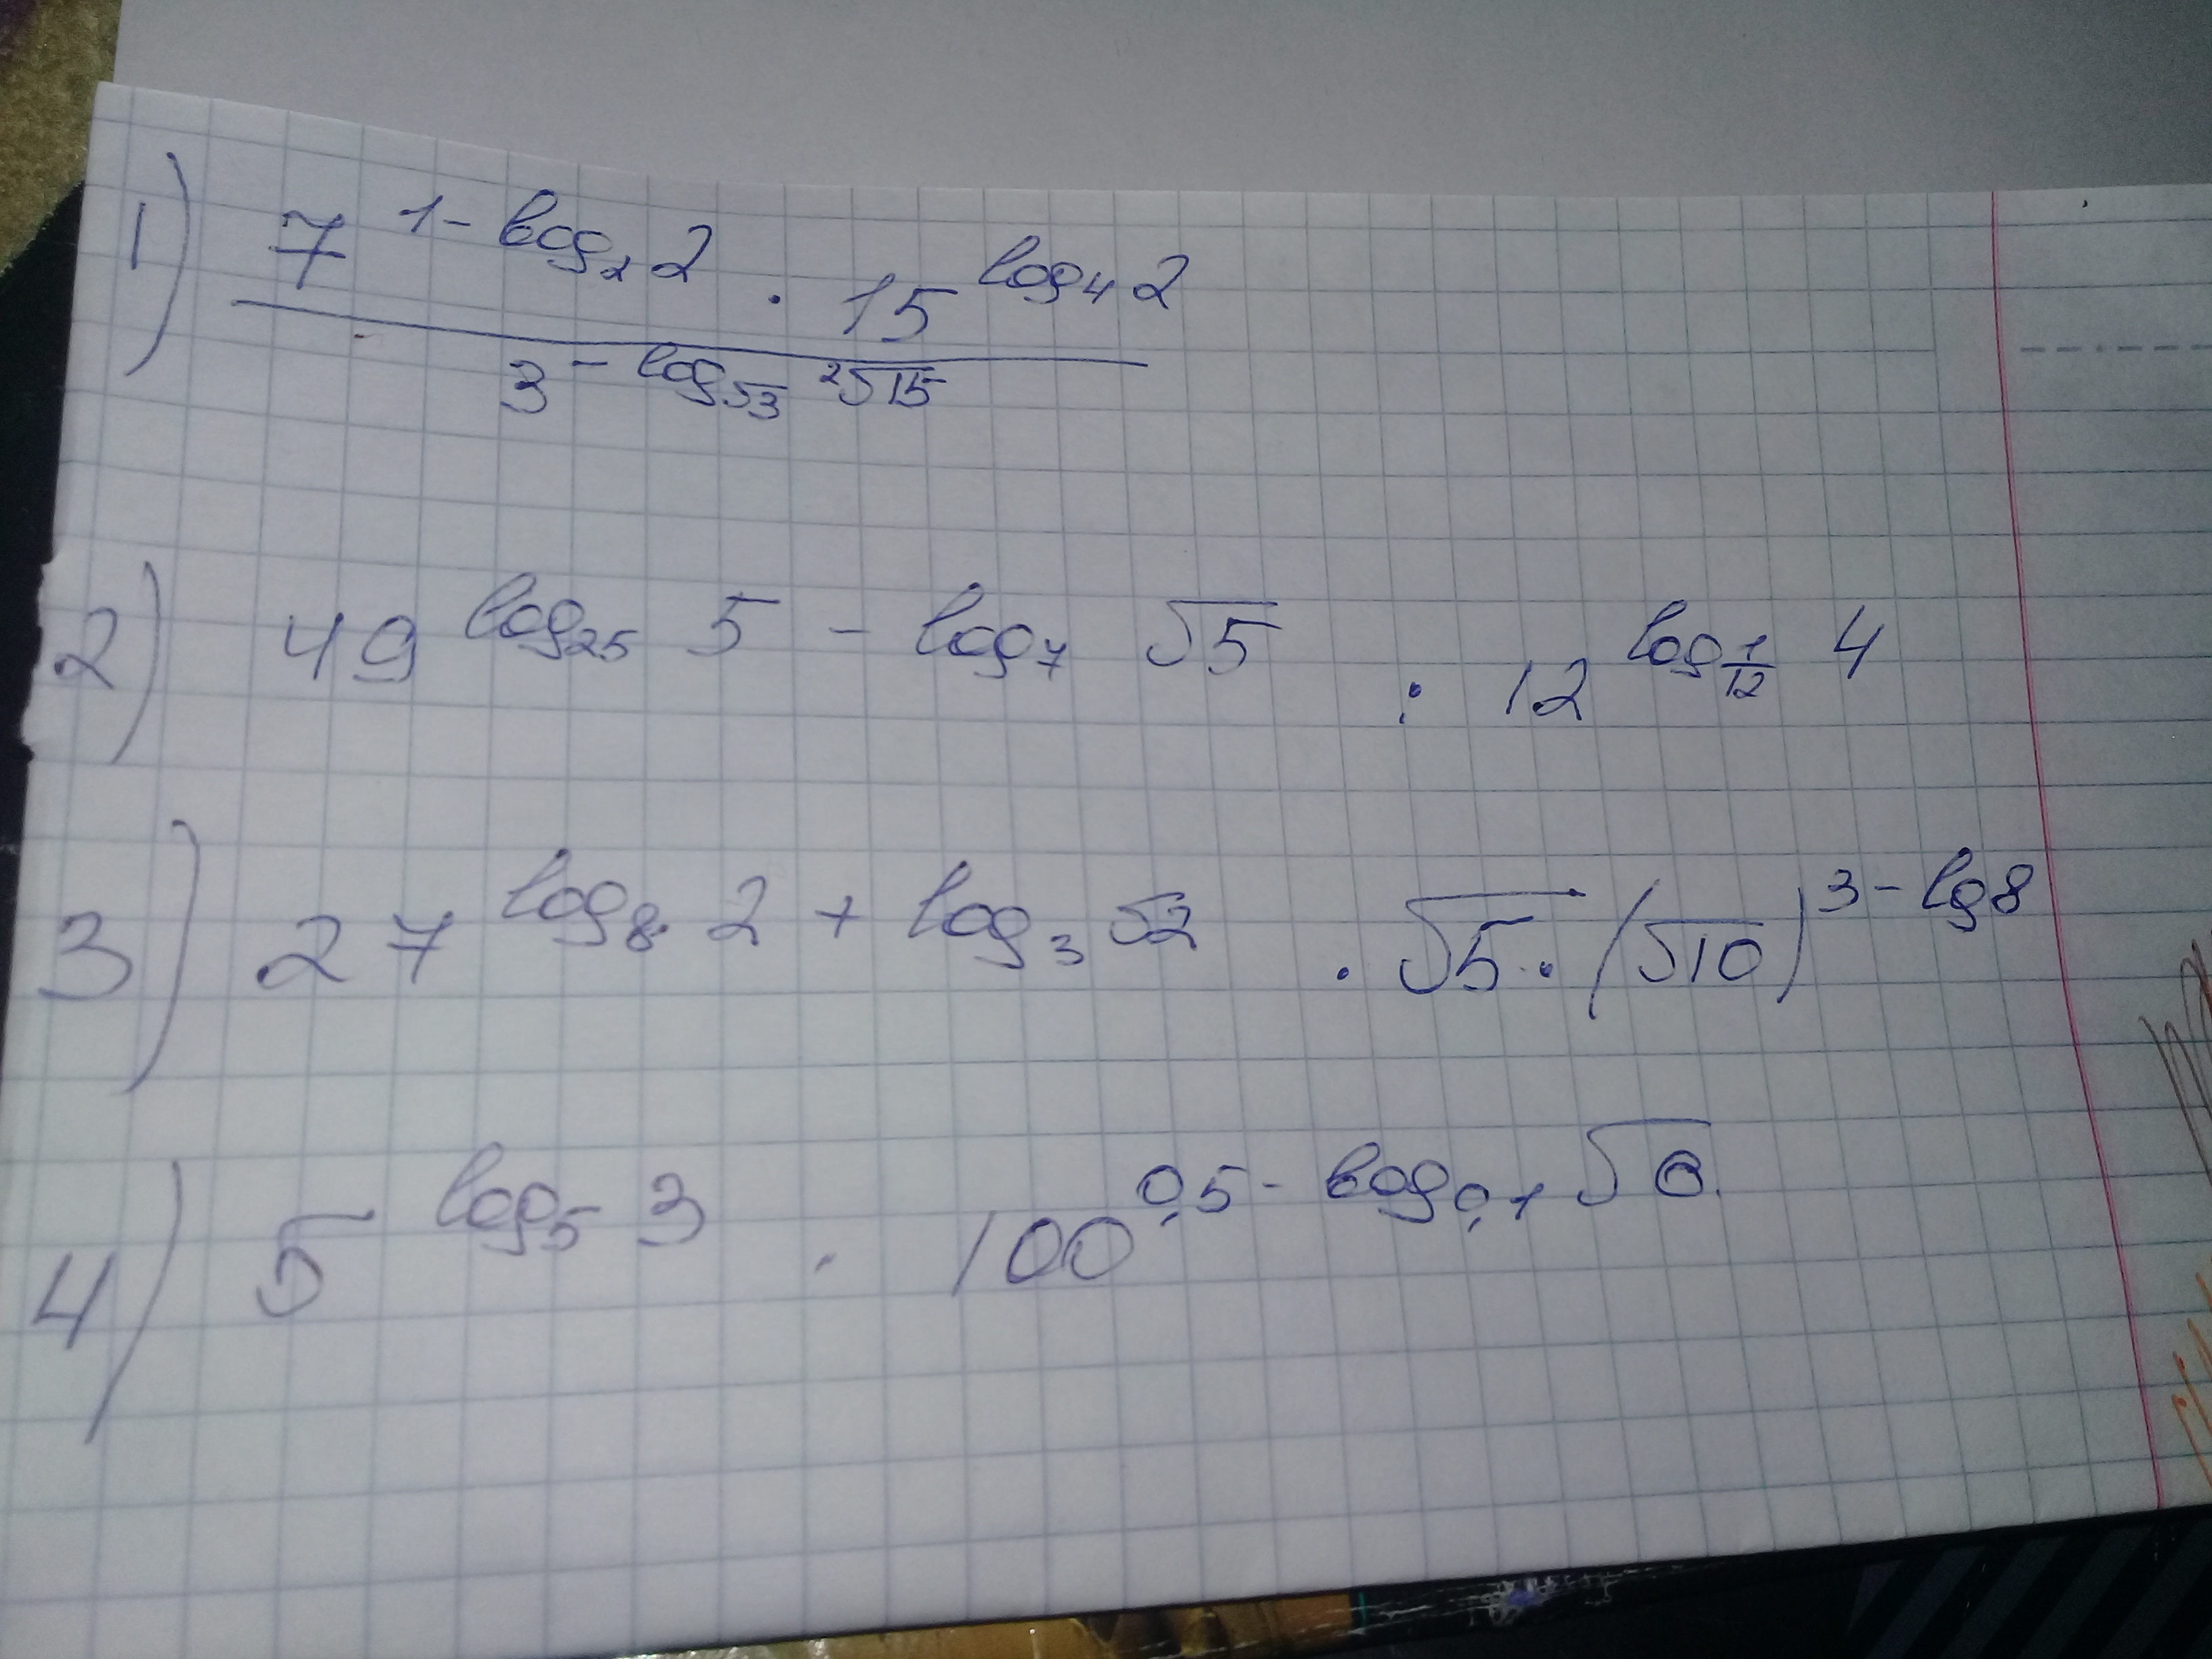 1) 7^(1 - log₂ 2) · 15^(log₄ 2)
3^(- log_√3 ²√15)
2) 49^(log₂₅ 5 - log₇ √5) : 12^(log_(1/12) 4)
3) 27^(log₈ 2 + log₃ √2) · √5 · (√10)^(3 - lg8)
4) 5^(log₅ 3) · 100^(0,5 - log_0,1 √6)